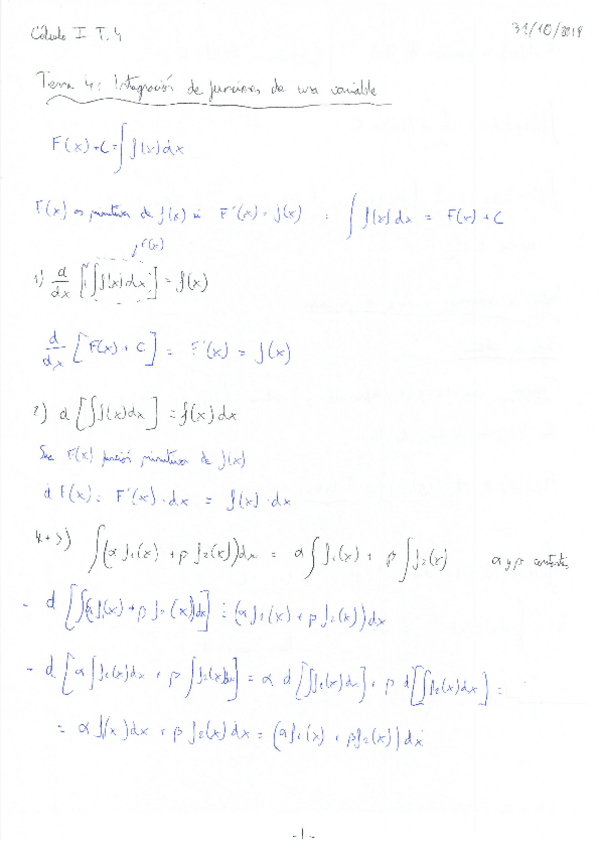 Cálculo I T.4
31/10/2018
Tema 4: Integración de funciones de una variable
F(x)+C=∫f(x)dx
F(x) es primitiva de f(x) si F'(x)=f(x) : ∫f(x)dx = F(x)+C
F(x)
1) d/dx [∫f(x)dx] = f(x)
d/dx [F(x)+C] = F'(x) = f(x)
2) d[∫f(x)dx] = f(x)dx
Sea F(x) función primitiva de f(x)
dF(x) = F'(x)·dx = f(x)·dx
4+5) ∫(αf₁(x)+βf₂(x))dx = α∫f₁(x)+β∫f₂(x) α y β constantes
- d[∫(αf(x)+βf₂(x))dx] = (αf₁(x)+βf₂(x))dx
- d[α∫f₁(x)dx+β∫f₂(x)dx] = α d[∫f₁(x)dx]+β d[∫f₂(x)dx] =
= αf(x)dx+βf₂(x)dx = (αf₁(x)+βf₂(x))dx
-1-